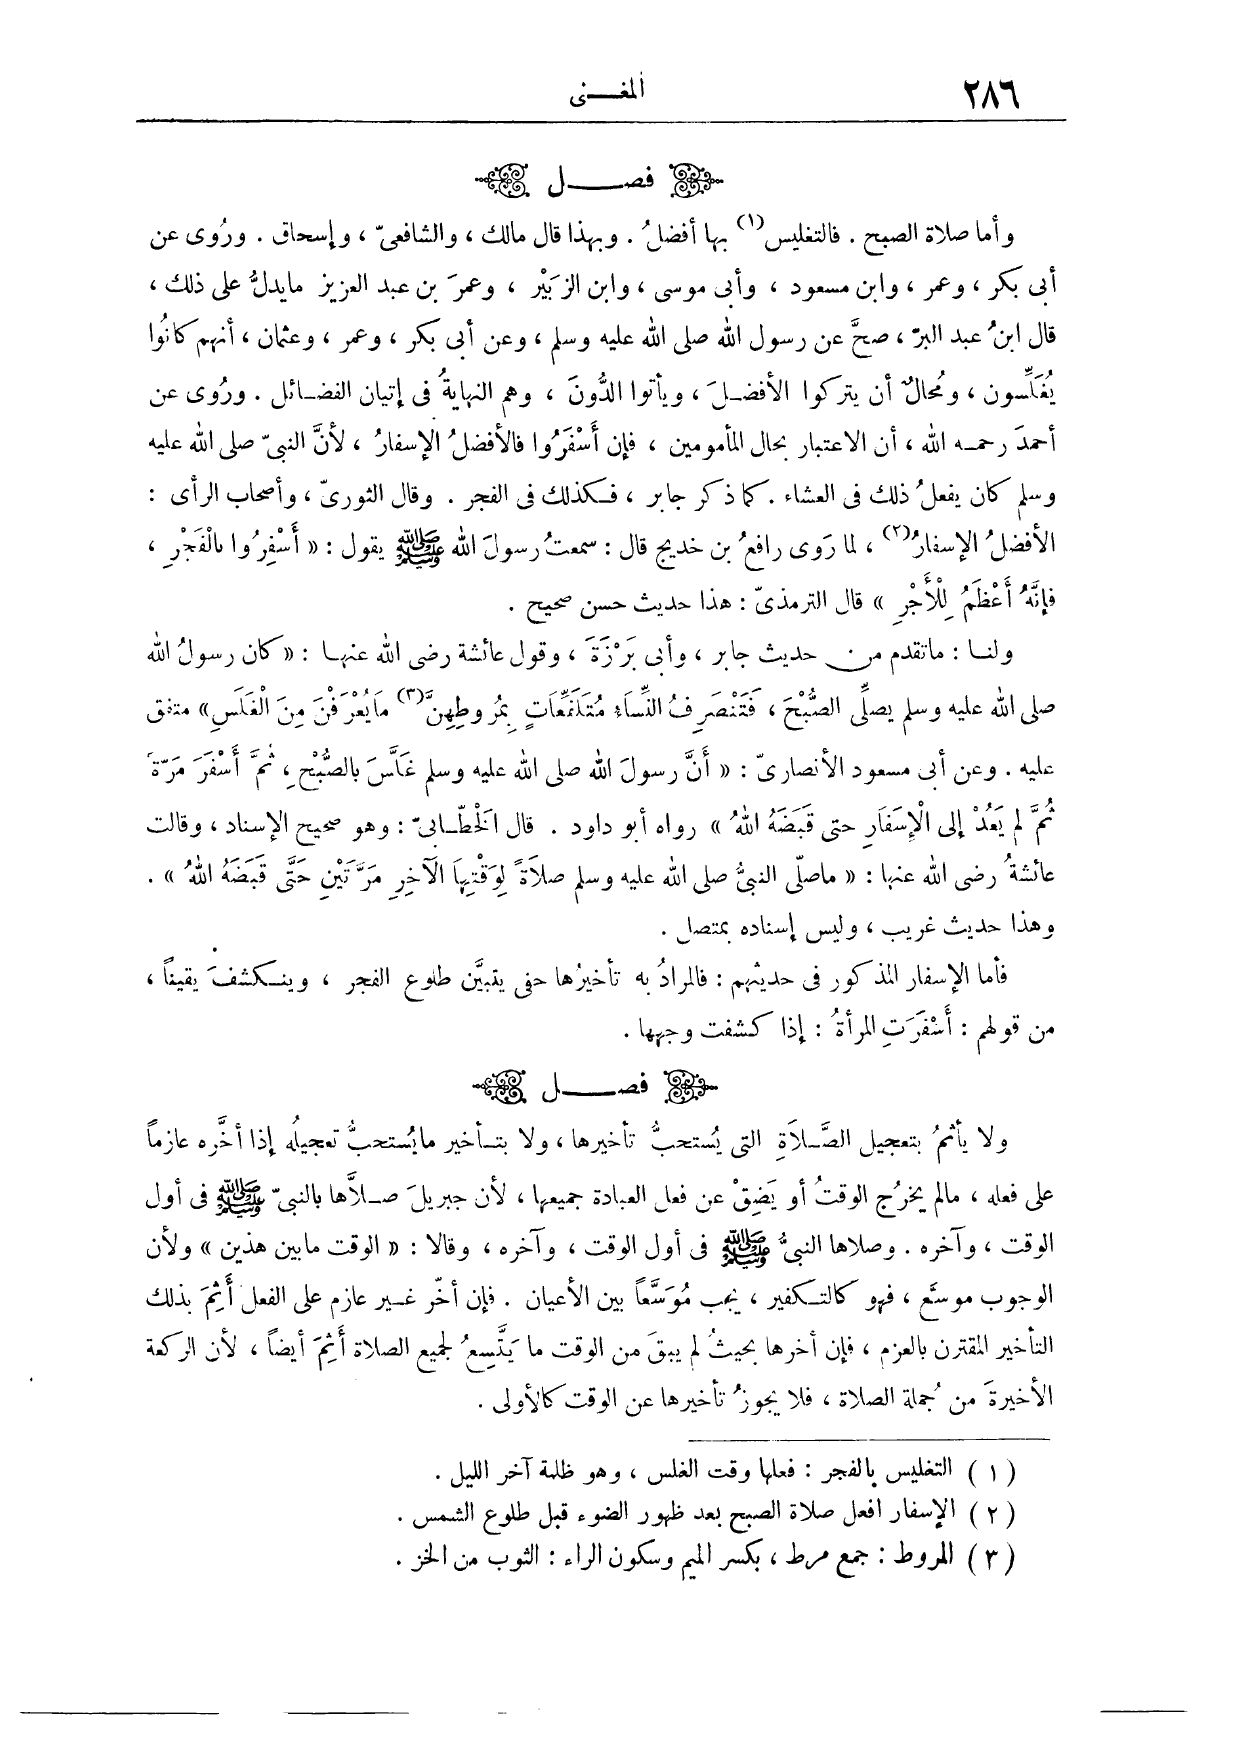 ٢٨٦
المغـــنى
فصـــــل
وأما صلاة الصبح . فالتغليس(١) بها أفضلُ . وبهذا قال مالك ، والشافعىّ ، وإسحاق . ورُوى عن
أبى بكر ، وعمر ، وابن مسعود ، وأبى موسى ، وابن الزبَيْر ، وعمرَ بن عبد العزيز مايدلُّ على ذلك ،
قال ابنُ عبد البرّ ، صحَّ عن رسول الله صلى الله عليه وسلم ، وعن أبى بكر ، وعمر ، وعثمان ، أنهم كانُوا
يُغَلِّسون ، ومُحالٌ أن يتركوا الأفضـلَ ، ويأتوا الدُّونَ ، وهم النهايةُ فى إتيان الفضـائل . ورُوى عن
أحمدَ رحمـه الله ، أن الاعتبار بحال المأمومين ، فإن أَسْفَرُوا فالأفضلُ الإسفارُ ، لأنَّ النبىّ صلى الله عليه
وسلم كان يفعلُ ذلك فى العشاء . كما ذكر جابر ، فـكذلك فى الفجر . وقال الثورىّ ، وأصحاب الرأى :
الأفضلُ الإسفارُ(٢) ، لما رَوى رافعُ بن خديج قال : سمعتُ رسولَ الله ﷺ يقول : « أَسْفِرُوا بالْفَجْرِ ،
فإنَّهُ أَعْظَمُ لِلْأَجْرِ » قال الترمذىّ : هذا حديث حسن صحيح .
ولنـا : ماتقدم من حديث جابر ، وأبى بَرْزَةَ ، وقول عائشة رضى الله عنهـا : « كان رسولُ الله
صلى الله عليه وسلم يصلِّى الصُّبْحَ ، فَتَنْصَرِفُ النِّسَاءِ مُتَلَفِّعَاتٍ بِمُرُوطِهِنَّ(٣) مَايُعْرَفْنَ مِنَ الْغَلَسِ» متفق
عليه . وعن أبى مسعود الأنصارىّ : « أَنَّ رسولَ الله صلى الله عليه وسلم غَلَّسَ بالصُّبْحِ ، ثُمَّ أَسْفَرَ مَرّةً
ثُمَّ لم يَعُدْ إلى الْإِسْفَارِ حتى قَبَضَهُ اللهُ » رواه أبو داود . قال الخَطّـابىّ : وهو صحيح الإسناد ، وقالت
عائشةُ رضى الله عنها : « ماصلّى النبىُّ صلى الله عليه وسلم صلاَةً لِوَقْتِهاَ الآخِرِ مَرَّتَيْنِ حَتَّى قَبَضَهُ اللهُ » .
وهذا حديث غريب ، وليس إسناده بمتصل .
فأما الإسفار المذكور فى حديثهم : فالمرادُ به تأخيرُها حتى يتبيَّن طلوع الفجر ، وينـكشفَ يقيناً ،
من قولهم : أَسْفَرَتِ المرأةُ : إذا كشفت وجهها .
فصـــــل
ولا يأثمُ بتعجيل الصَّـلاَةِ التى يُستحبُّ تأخيرها ، ولا بتـأخير مايُستحبُّ تعجيلُه إذا أخَّره عازماً
على فعله ، مالم يخرُج الوقتُ أو يَضِقْ عن فعل العبادة جميعها ، لأن جبريلَ صـلاَّها بالنبىّ ﷺ فى أول
الوقت ، وآخره . وصلاها النبىُّ ﷺ فى أول الوقت ، وآخره ، وقالا : « الوقت مابين هذين » ولأن
الوجوب موسَّع ، فهو كالتـكفير ، يجب مُوَسَّعاً بين الأعيان . فإن أخّر غـير عازم على الفعل أَثِمَ بذلك
التأخير المقترن بالعزم ، فإن أخرها بحيثُ لم يبقَ من الوقت ما يَتَّسِعُ لجميع الصلاة أَثِمَ أيضاً ، لأن الركعة
الأخيرةَ من جُملة الصلاة ، فلا يجوزُ تأخيرها عن الوقت كالأولى .
( ١ ) التغليس بالفجر : فعلها وقت الغلس ، وهو ظلمة آخر الليل .
( ٢ ) الإسفار افعل صلاة الصبح بعد ظهور الضوء قبل طلوع الشمس .
( ٣ ) المروط : جمع مرط ، بكسر الميم وسكون الراء : الثوب من الخز .